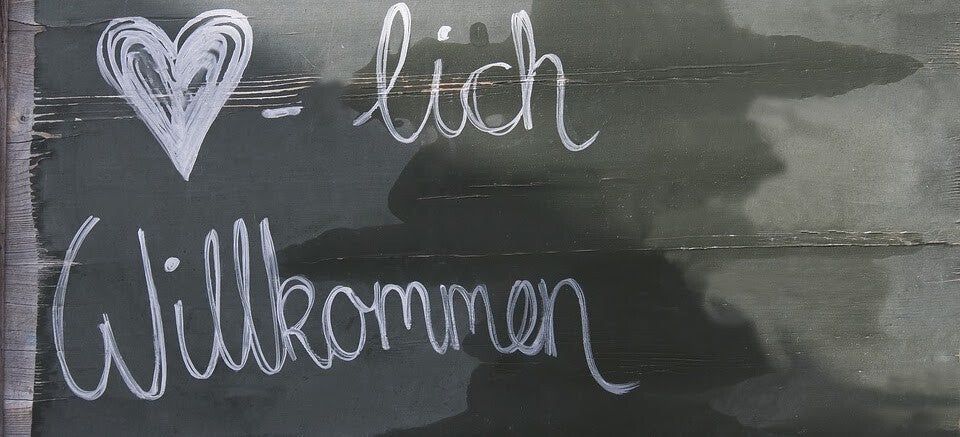 ❤-lich
Willkommen